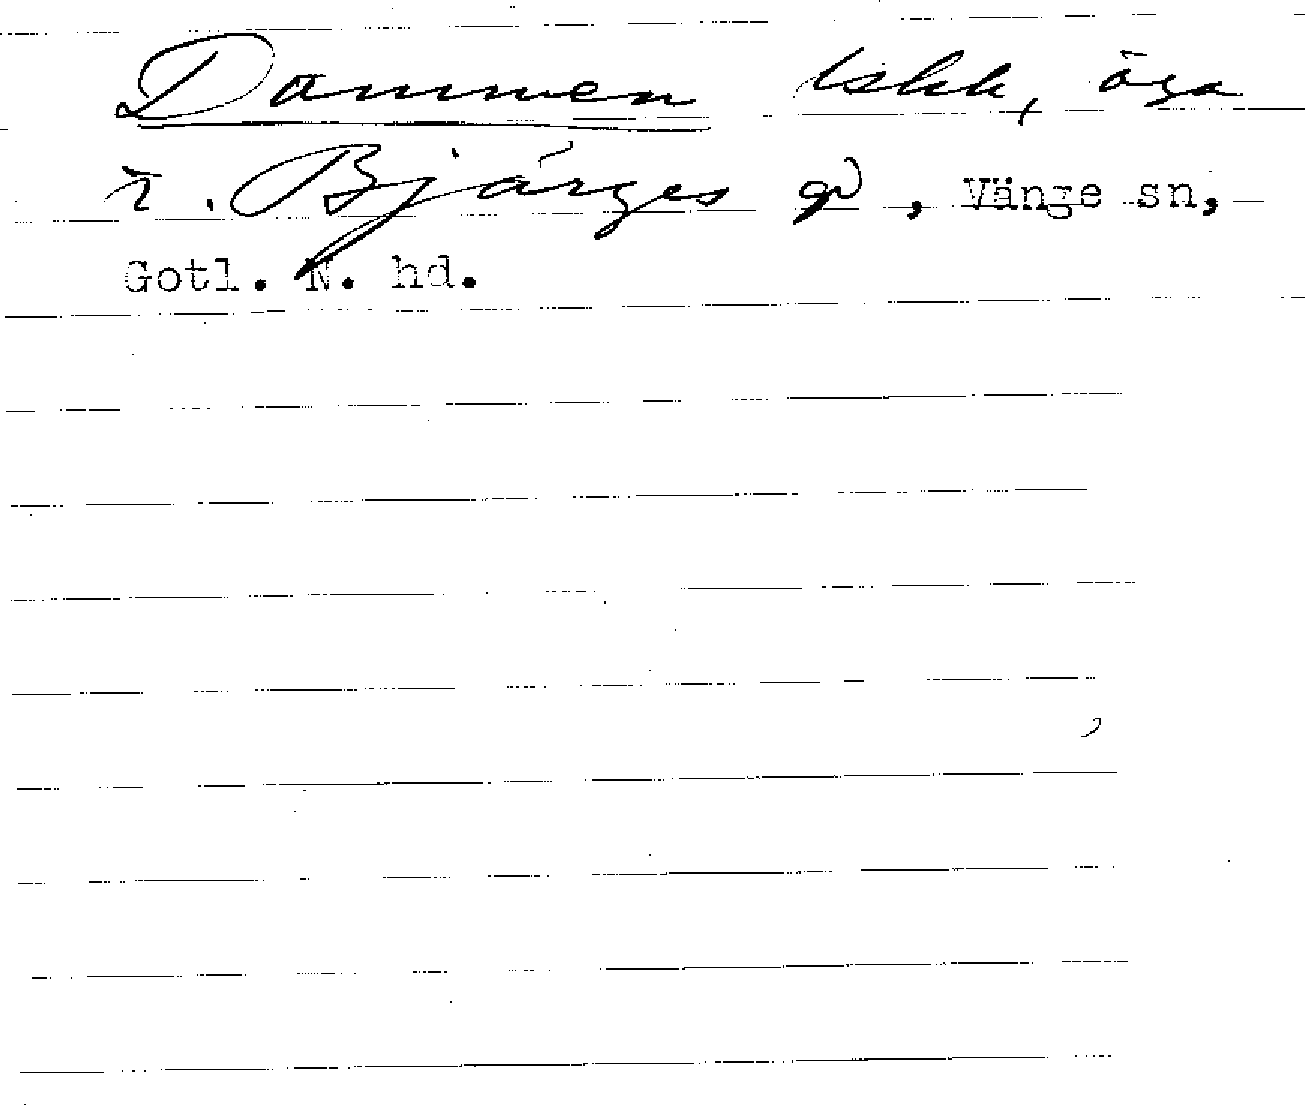 Dammen lskk, äga
t. Bjärges gd, Vänge sn,
Gotl. N. hd.